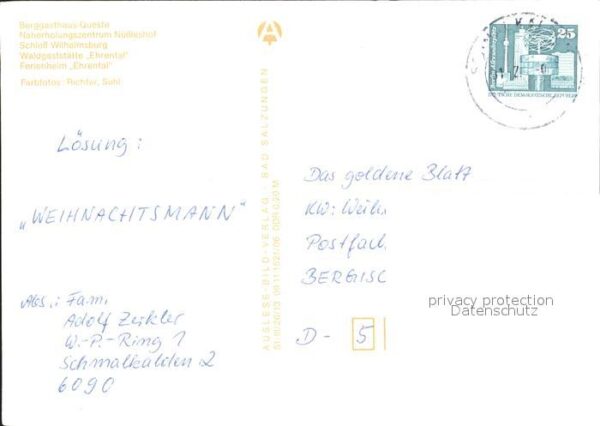 Berggasthaus Queste
Naherholungszentrum Nüßleshof
Schloß Wilhelmsburg
Waldgaststätte „Ehrental"
Ferienheim „Ehrental"
Farbfotos: Richter, Suhl
Lösung:
„WEIHNACHTSMANN"
Abs.: Fam.
Adolf
W.-P.-Ring 1
Schmalkalden 2
6090
AUSLESE-BILD-VERLAG - BAD SALZUNGEN
DDR 0,20 M
25
DEUTSCHE DEMOKRATISCHE REPUBLIK
Das goldene Blatt
KW: Weih
Postfach
BERGISC
D - 5
privacy protection
Datenschutz